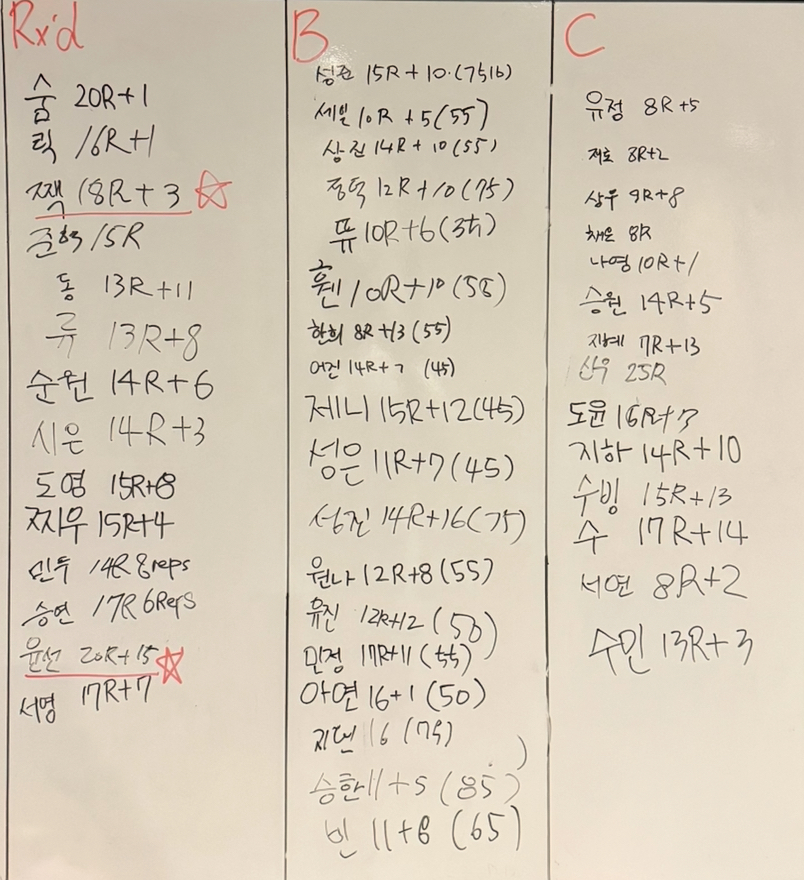 Rx'd
숨 20R+1
릭 16R+1
짹 18R+3
준혁 15R
동 13R+11
류 13R+8
순원 14R+6
시은 14R+3
도영 15R+8
찌우 15R+4
민두 14R 8reps
승연 17R 6Reps
윤선 20R+15
서영 17R+7
B
15R+10 (75lb)
세일 10R+5 (55)
상진 14R+10 (55)
12R+10 (75)
쮸 10R+6
휀 10R+10
한희 8R+13 (55)
어진 14R+7 (45)
제니 15R+12 (45)
성은 11R+7 (45)
성진 14R+16 (75)
원나 12R+8 (55)
유진 12R+12 (50)
민정 17R+11 (55)
아연 16+1 (50)
16 (75)
승한 11+5 (85)
빈 11+8 (65)
C
유정 8R+5
재호 8R+2
상우 9R+8
채은 8R
나영 10R+1
승원 14R+5
지혜 7R+13
25R
도윤 16R+7
지하 14R+10
수빙 15R+13
수 17R+14
서연 8R+2
수민 13R+3